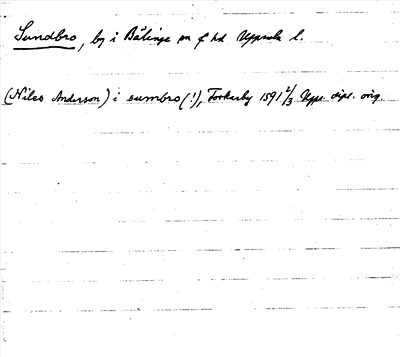 Sundbro, by i Bälinge sn o hd Uppsala l.
(Niles Anderson) i sumbro (!), Torkarby 1591 2/3 Upps. dipl. orig.